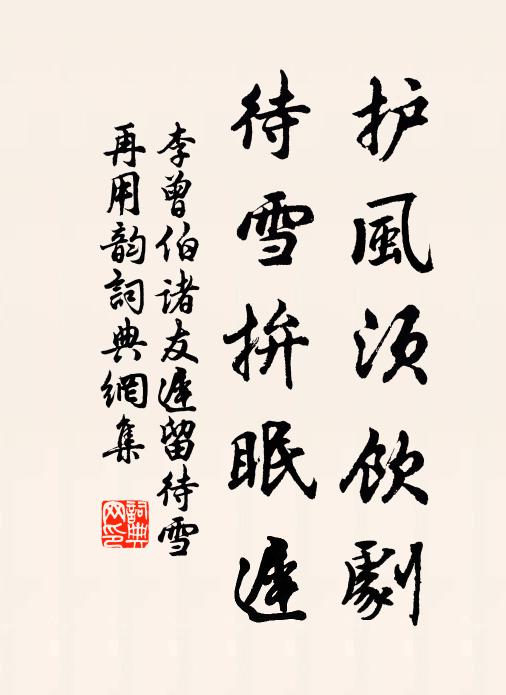 护風須飲劇
待雪拚眠遲
李曾伯諸友遲留待雪
再用韵詞典網集
詞典网印